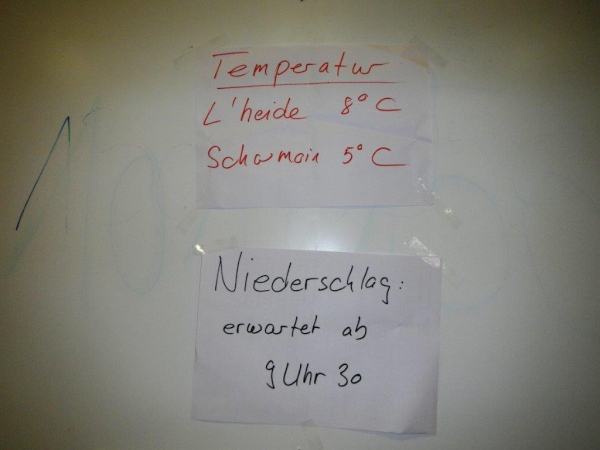 Temperatur
L'heide 8°C
Scharmoin 5°C
Niederschlag:
erwartet ab
9 Uhr 30